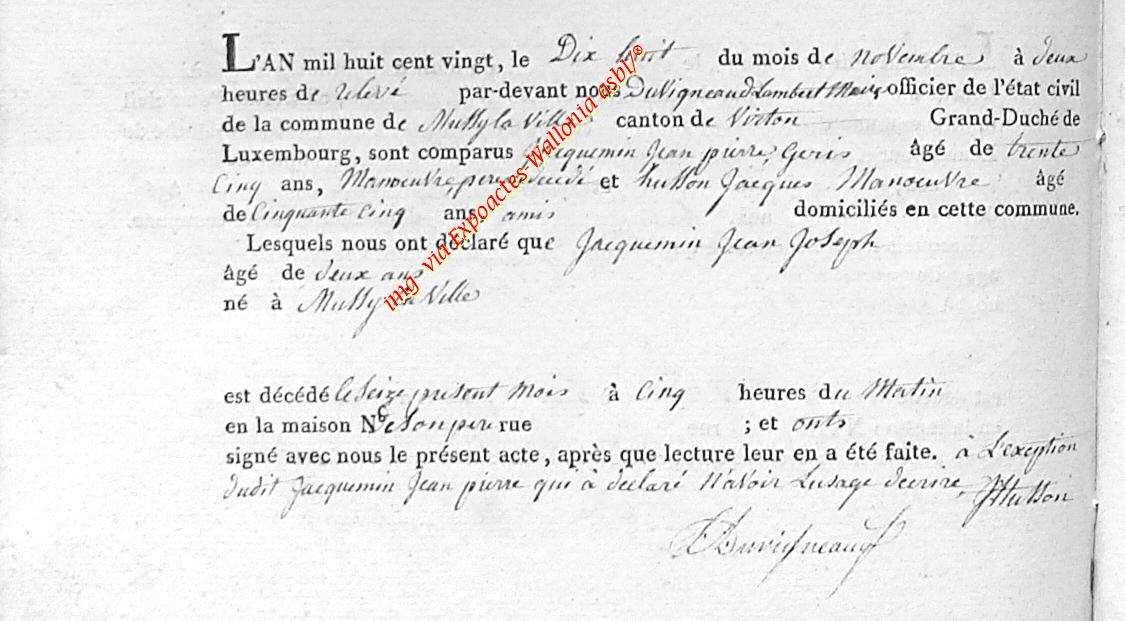 L'AN mil huit cent vingt, le Dix huit du mois de novembre à deux
heures de relevé par-devant nous Duvigneaud Lambert Maire officier de l'état civil
de la commune de Mussy la Ville canton de Virton Grand-Duché de
Luxembourg, sont comparus Jacquemin Jean pierre, âgé de trente
Cinq ans, Manoeuvre pere et husson Jacques Manoeuvre âgé
de Cinquante Cinq ans amis domiciliés en cette commune.
Lesquels nous ont déclaré que Jacquemin Jean Joseph
âgé de deux ans
né à Mussy la Ville
est décédé le Seize present Mois à Cinq heures du Matin
en la maison N de Son pere rue ; et onts
signé avec nous le présent acte, après que lecture leur en a été faite. à L'exception
dudit Jacquemin Jean pierre qui à declaré N'avoir Lusage decrire
JHusson
Duvigneaud
img via Expoactes-Wallonia asbl/®